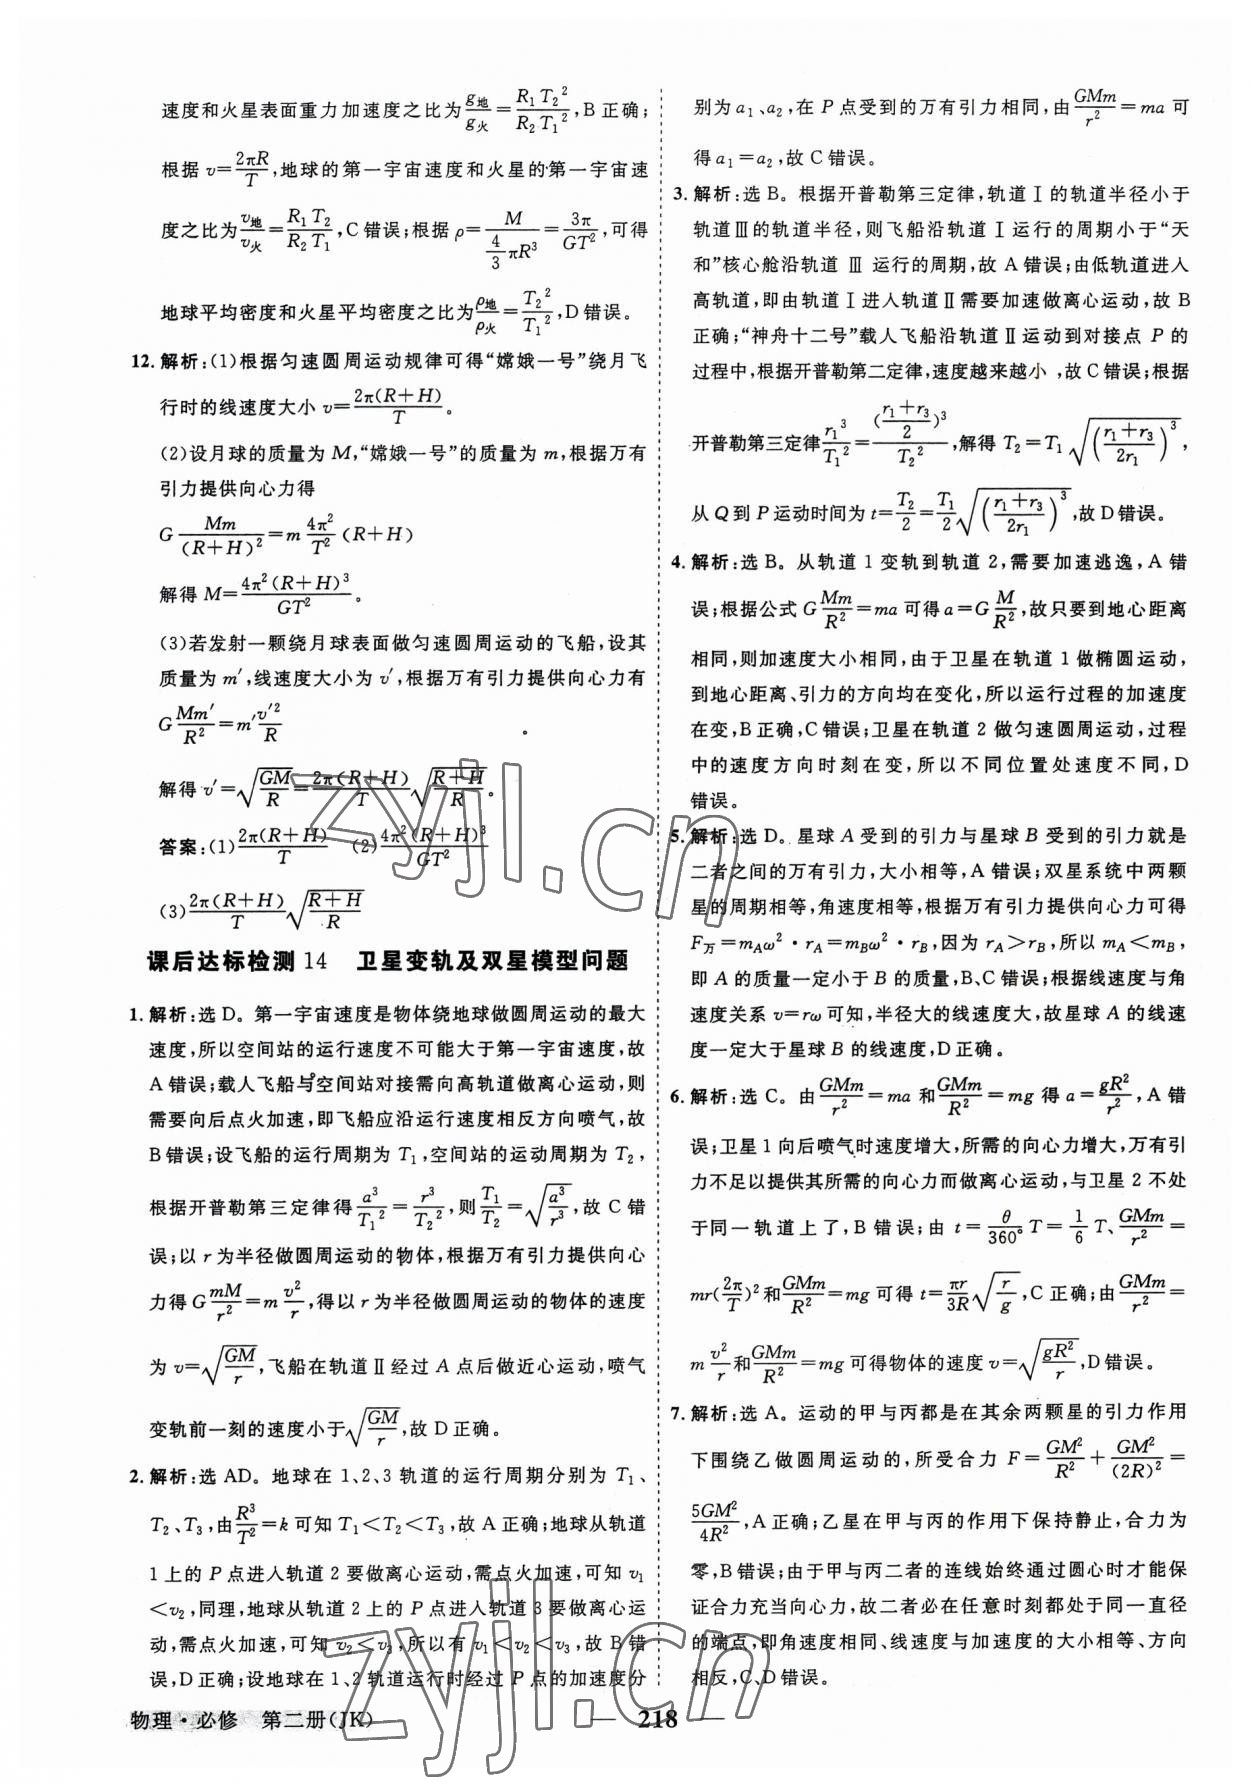 速度和火星表面重力加速度之比为g地/g火=R₁T₂²/R₂T₁²,B正确;
根据 v=2πR/T,地球的第一宇宙速度和火星的第一宇宙速
度之比为v地/v火=R₁T₂/R₂T₁,C错误;根据ρ=M/(4/3 πR³)=3π/GT²,可得
地球平均密度和火星平均密度之比为ρ地/ρ火=T₂²/T₁²,D错误。
12.解析:(1)根据匀速圆周运动规律可得“嫦娥一号”绕月飞
行时的线速度大小 v=2π(R+H)/T。
(2)设月球的质量为M,“嫦娥一号”的质量为m,根据万有
引力提供向心力得
G Mm/(R+H)²=m 4π²/T² (R+H)
解得 M=4π²(R+H)³/GT²。
(3)若发射一颗绕月球表面做匀速圆周运动的飞船,设其
质量为m′,线速度大小为v′,根据万有引力提供向心力有
G Mm′/R²=m′ v′²/R
解得 v′=√(GM/R)=2π(R+H)/T √((R+H)/R)。
答案:(1)2π(R+H)/T (2)4π²(R+H)³/GT²
(3)2π(R+H)/T √((R+H)/R)
课后达标检测14 卫星变轨及双星模型问题
1.解析:选D。第一宇宙速度是物体绕地球做圆周运动的最大
速度,所以空间站的运行速度不可能大于第一宇宙速度,故
A错误;载人飞船与空间站对接需向高轨道做离心运动,则
需要向后点火加速,即飞船应沿运行速度相反方向喷气,故
B错误;设飞船的运行周期为T₁,空间站的运动周期为T₂,
根据开普勒第三定律得a³/T₁²=r³/T₂²,则T₁/T₂=√(a³/r³),故C错
误;以r为半径做圆周运动的物体,根据万有引力提供向心
力得G mM/r²=m v²/r,得以r为半径做圆周运动的物体的速度
为 v=√(GM/r),飞船在轨道Ⅱ经过A点后做近心运动,喷气
变轨前一刻的速度小于√(GM/r),故D正确。
2.解析:选AD。地球在1、2、3轨道的运行周期分别为T₁、
T₂、T₃,由R³/T²=k可知T₁<T₂<T₃,故A正确;地球从轨道
1上的P点进入轨道2要做离心运动,需点火加速,可知v₁
<v₂,同理,地球从轨道2上的P点进入轨道3要做离心运
动,需点火加速,可知v₂<v₃,所以有v₁<v₂<v₃,故B错
误,D正确;设地球在1、2轨道运行时经过P点的加速度分
别为a₁、a₂,在P点受到的万有引力相同,由GMm/r²=ma可
得a₁=a₂,故C错误。
3.解析:选B。根据开普勒第三定律,轨道Ⅰ的轨道半径小于
轨道Ⅲ的轨道半径,则飞船沿轨道Ⅰ运行的周期小于“天
和”核心舱沿轨道Ⅲ运行的周期,故A错误;由低轨道进入
高轨道,即由轨道Ⅰ进入轨道Ⅱ需要加速做离心运动,故B
正确;“神舟十二号”载人飞船沿轨道Ⅱ运动到对接点P的
过程中,根据开普勒第二定律,速度越来越小,故C错误;根据
开普勒第三定律r₁³/T₁²=((r₁+r₃)/2)³/T₂²,解得T₂=T₁√(((r₁+r₃)/2r₁)³),
从Q到P运动时间为t=T₂/2=T₁/2 √(((r₁+r₃)/2r₁)³),故D错误。
4.解析:选B。从轨道1变轨到轨道2,需要加速逃逸,A错
误;根据公式G Mm/R²=ma可得a=G M/R²,故只要到地心距离
相同,则加速度大小相同,由于卫星在轨道1做椭圆运动,
到地心距离、引力的方向均在变化,所以运行过程的加速度
在变,B正确,C错误;卫星在轨道2做匀速圆周运动,过程
中的速度方向时刻在变,所以不同位置处速度不同,D
错误。
5.解析:选D。星球A受到的引力与星球B受到的引力就是
二者之间的万有引力,大小相等,A错误;双星系统中两颗
星的周期相等,角速度相等,根据万有引力提供向心力可得
F万=mAω²·rA=mBω²·rB,因为rA>rB,所以mA<mB,
即A的质量一定小于B的质量,B、C错误;根据线速度与角
速度关系v=rω可知,半径大的线速度大,故星球A的线速
度一定大于星球B的线速度,D正确。
6.解析:选C。由GMm/r²=ma和GMm/R²=mg得a=gR²/r²,A错
误;卫星1向后喷气时速度增大,所需的向心力增大,万有引
力不足以提供其所需的向心力而做离心运动,与卫星2不处
于同一轨道上了,B错误;由t=θ/360° T=1/6 T、GMm/r²=
mr(2π/T)²和GMm/R²=mg可得t=πr/3R √(r/g),C正确;由GMm/r²=
m v²/r和GMm/R²=mg可得物体的速度v=√(gR²/r),D错误。
7.解析:选A。运动的甲与丙都是在其余两颗星的引力作用
下围绕乙做圆周运动的,所受合力F=GM²/R²+GM²/(2R)²=
5GM²/4R²,A正确;乙星在甲与丙的作用下保持静止,合力为
零,B错误;由于甲与丙二者的连线始终通过圆心时才能保
证合力充当向心力,故二者必在任意时刻都处于同一直径
的端点,即角速度相同、线速度与加速度的大小相等、方向
相反,C、D错误。
物理·必修 第二册(JK)
218
zyjl.cn
zyjl.cn